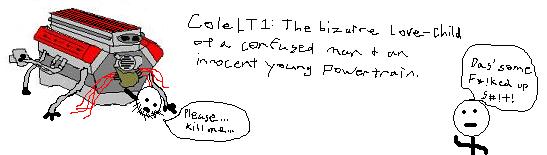 ColeLT1: The bizarre Love-child
of a confused man & an
innocent young powertrain.
Please...
kill me...
Das' some
F*!ked up
$#!t!